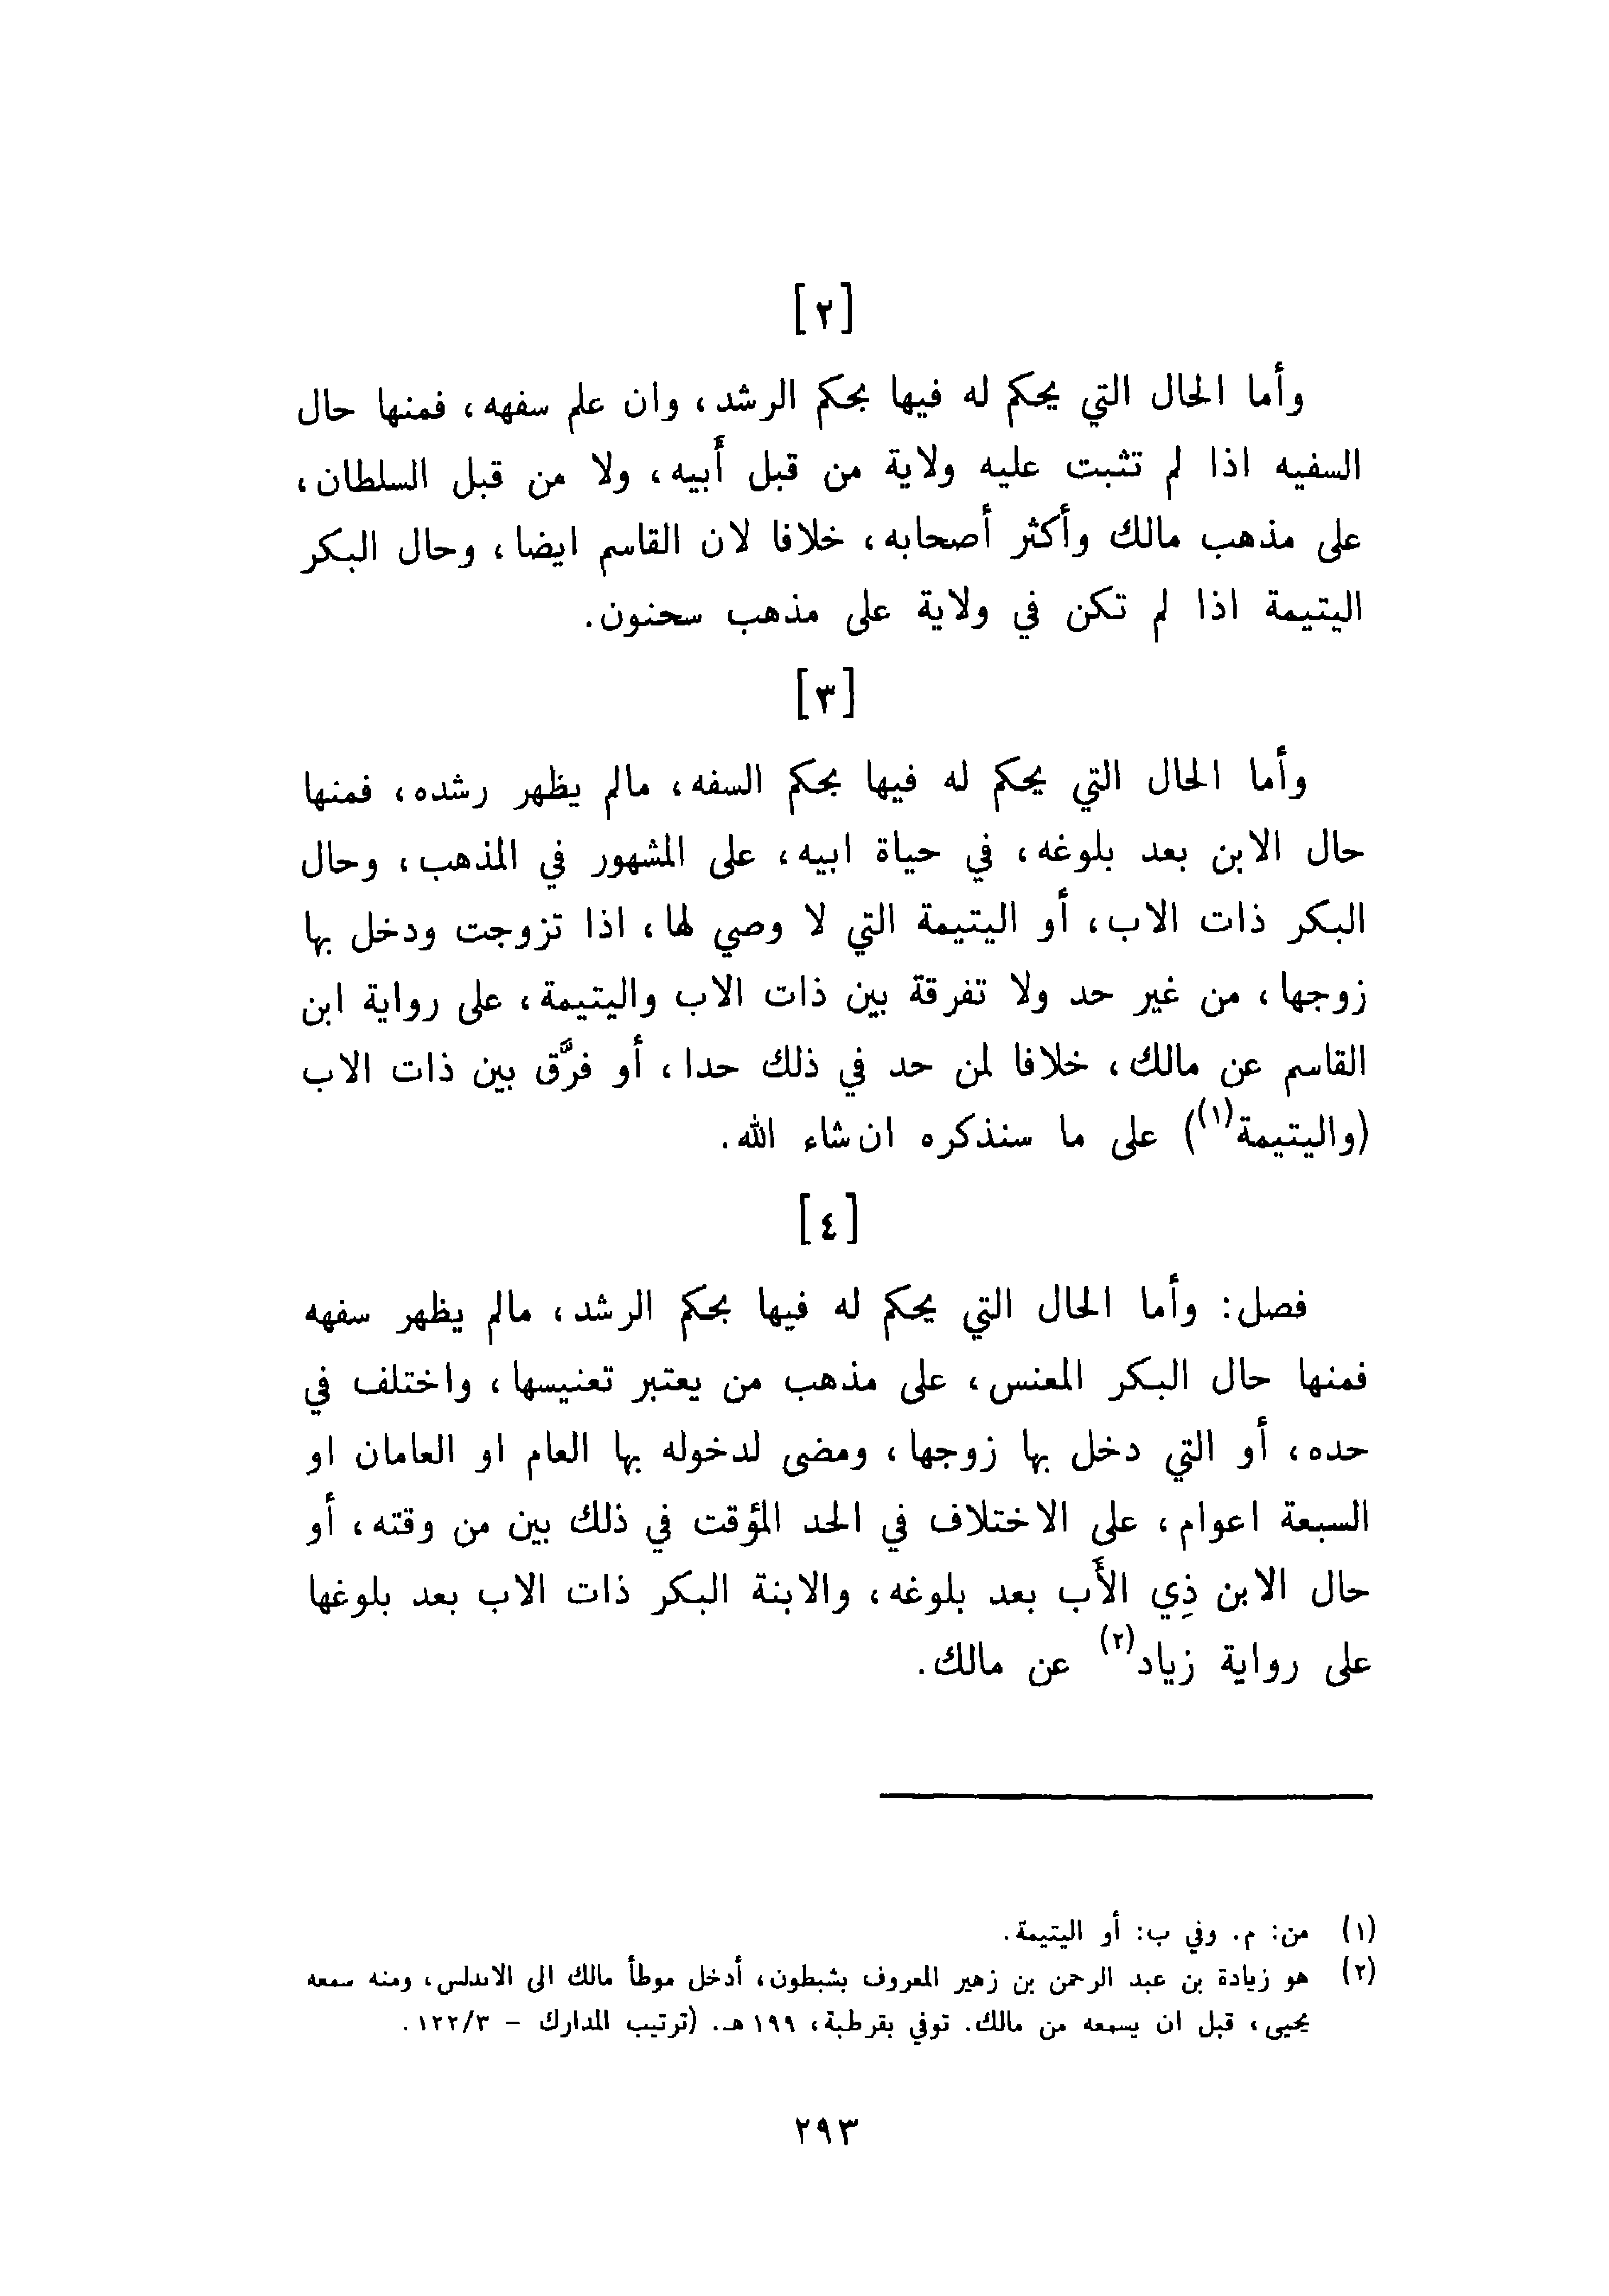 [٢]
وأما الحال التي يحكم له فيها بحكم الرشد، وان علم سفهه، فمنها حال
السفيه اذا لم تثبت عليه ولاية من قبل أَبيه، ولا من قبل السلطان،
على مذهب مالك وأكثر أصحابه، خلافا لان القاسم ايضا، وحال البكر
اليتيمة اذا لم تكن في ولاية على مذهب سحنون.
[٣]
وأما الحال التي يحكم له فيها بحكم السفه، مالم يظهر رشده، فمنها
حال الابن بعد بلوغه، في حياة ابيه، على المشهور في المذهب، وحال
البكر ذات الاب، أو اليتيمة التي لا وصي لها، اذا تزوجت ودخل بها
زوجها، من غير حد ولا تفرقة بين ذات الاب واليتيمة، على رواية ابن
القاسم عن مالك، خلافا لمن حد في ذلك حدا، أو فرَّق بين ذات الاب
(واليتيمة(١)) على ما سنذكره ان شاء الله.
[٤]
فصل: وأما الحال التي يحكم له فيها بحكم الرشد، مالم يظهر سفهه
فمنها حال البكر المعنس، على مذهب من يعتبر تعنيسها، واختلف في
حده، أو التي دخل بها زوجها، ومضى لدخوله بها العام او العامان او
السبعة اعوام، على الاختلاف في الحد المؤقت في ذلك بين من وقته، أو
حال الابن ذِي الأَب بعد بلوغه، والابنة البكر ذات الاب بعد بلوغها
على رواية زياد(٢) عن مالك.
(١) من: م. وفي ب: أو اليتيمة.
(٢) هو زيادة بن عبد الرحمن بن زهير المعروف بشبطون، أدخل موطأ مالك الى الاندلس، ومنه سمعه
يحيى، قبل ان يسمعه من مالك. توفي بقرطبة، ١٩٩ هـ. (ترتيب المدارك - ١٢٢/٣.
٢٩٣